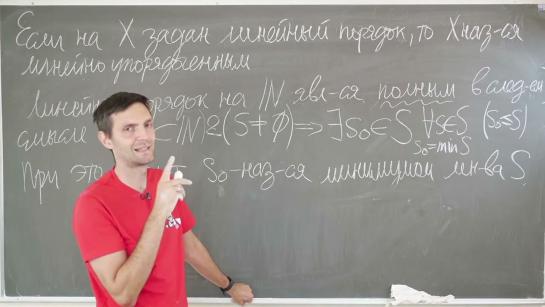 Если на X задан линейный порядок, то X наз-ся
линейно упорядоченным
Линейн порядок на ℕ явл-ся полным в след-ем
смысле ⊂ℕ)&(S≠∅)⟹∃s₀∈S ∀s∈S (s₀≤s)
s₀=min S
При это s₀-наз-ся минимумом мн-ва S